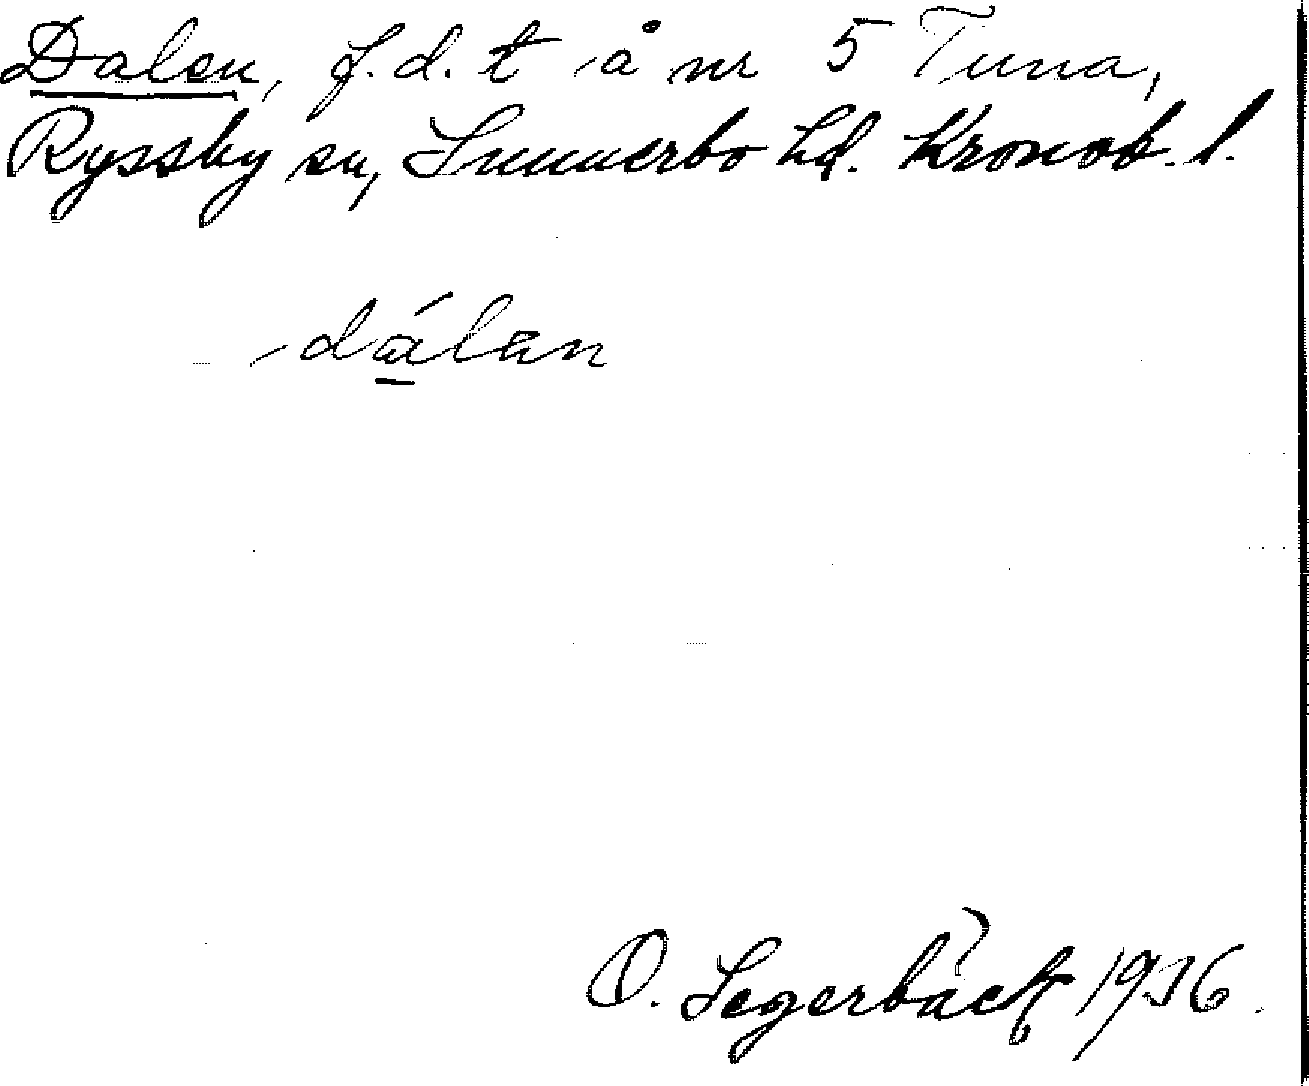 Dalen, f.d. t å nr 5 Tuna,
Ryssby sn, Sunnerbo hd. Kronob. l.
dá̱lən
O. Segerbäck 1936.